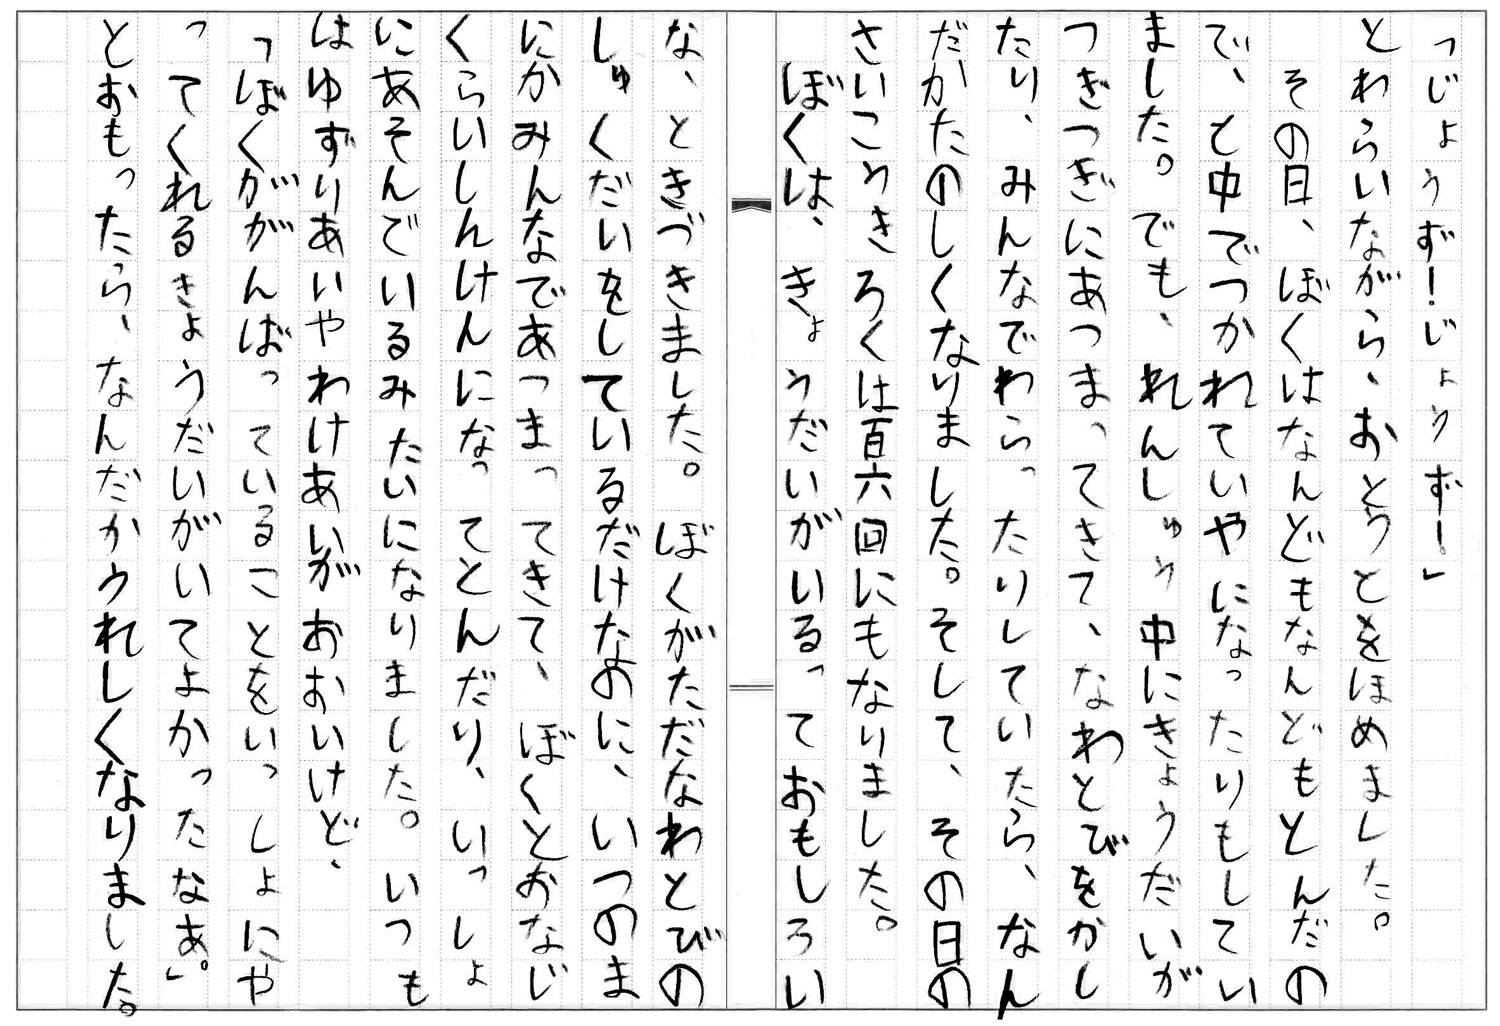 「じょうず！じょうず！」
とわらいながら、おとうとをほめました。
その日、ぼくはなんどもなんどもとんだの
で、と中でつかれていやになったりもしてい
ました。でも、れんしゅう中にきょうだいが
つぎつぎにあつまってきて、なわとびをかし
たり、みんなでわらったりしていたら、なん
だかたのしくなりました。そして、その日の
さいこうきろくは百六回にもなりました。
ぼくは、きょうだいがいるっておもしろい
な、ときづきました。ぼくがただなわとびの
しゅくだいをしているだけなのに、いつのま
にかみんなであつまってきて、ぼくとおなじ
くらいしんけんになってとんだり、いっしょ
にあそんでいるみたいになりました。いつも
はゆずりあいやわけあいがおおいけど、
「ぼくががんばっていることをいっしょにや
ってくれるきょうだいがいてよかったなあ。」
とおもったら、なんだかうれしくなりました。